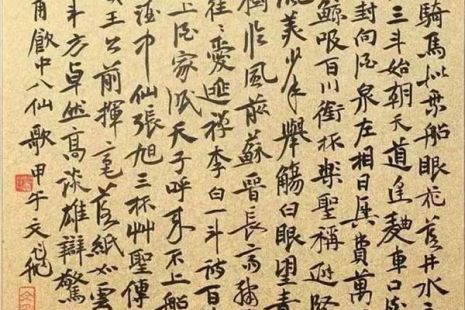 騎馬似乘船眼花落井水
三斗始朝天道逢麴車口流
封向酒泉左相日興費萬
鯨吸百川銜杯樂聖稱避賢
灑美少年舉觴白眼望青
樹臨風前蘇晉長齋繡
往往愛逃禪李白一斗詩百
上酒家眠天子呼來不上船
酒中仙張旭三杯艸聖傳
王公前揮毫落紙如雲
斗方卓然高談雄辯驚
甫飲中八仙歌甲午文